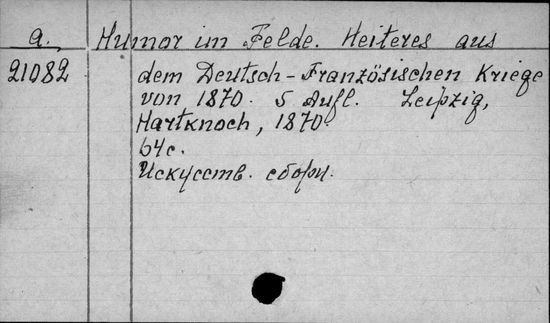 a. Humor im Felde. Heiteres aus
21082 dem Deutsch-Französischen Kriege
von 1870. 5 Aufl. Leipzig,
Hartknoch, 1870.
64с.
Искусств. сборн.